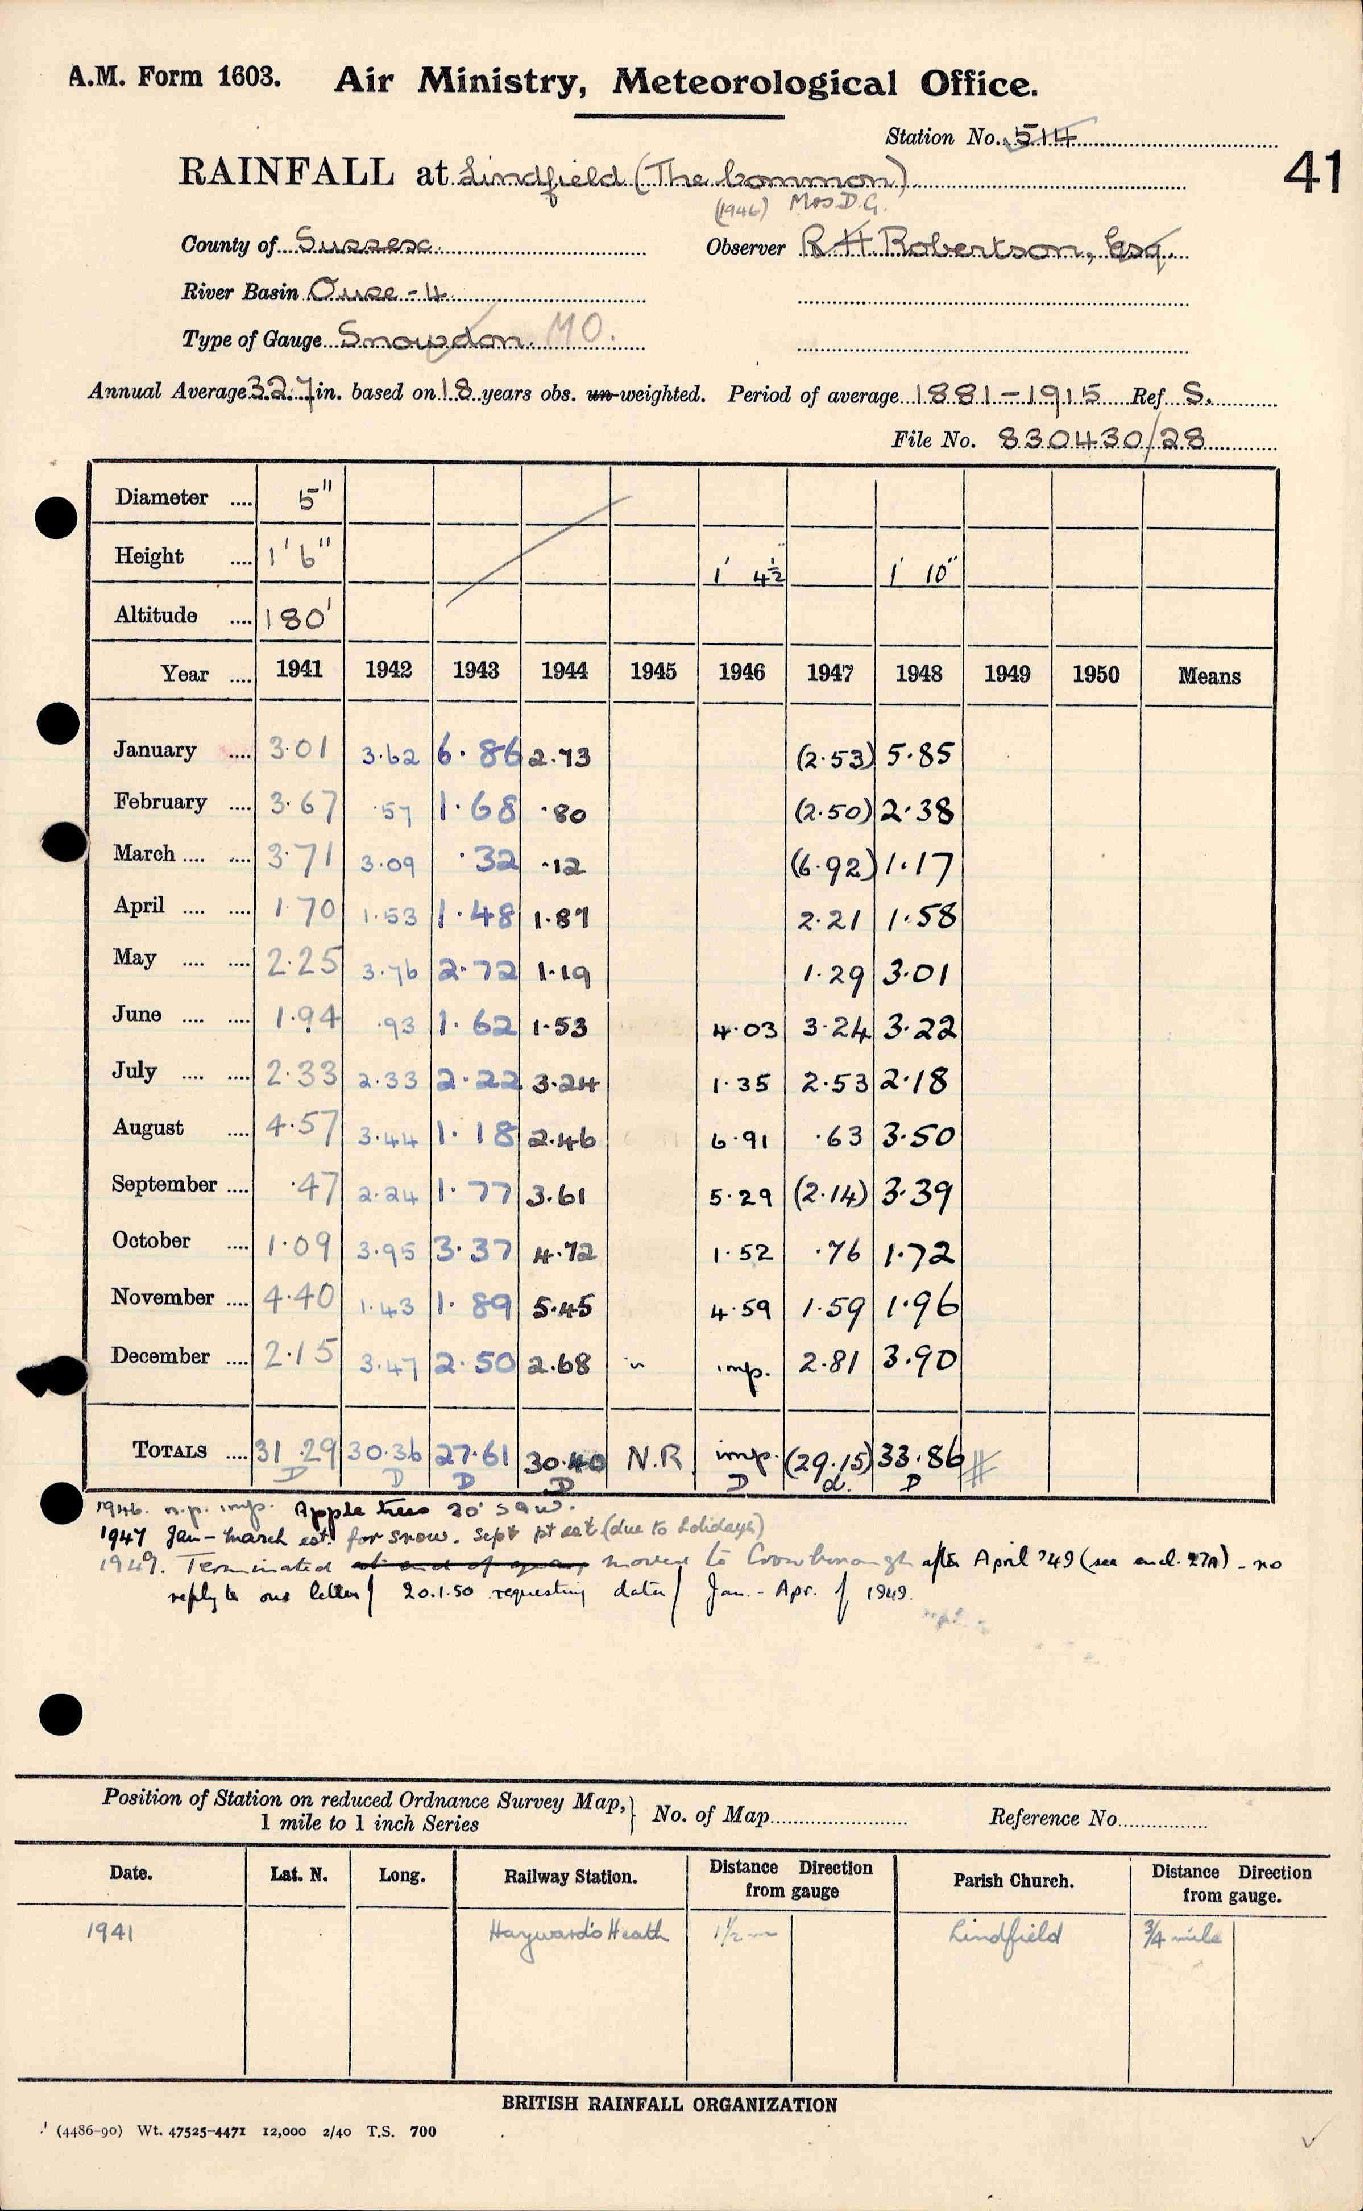 A.M. Form 1603. Air Ministry, Meteorological Office.
Station No. 514
41
RAINFALL at Lindfield (The Common)
(1946) Mrs D.G.
County of Sussex. Observer R H Robertson, Esq.
River Basin Ouse - 4
Type of Gauge Snowdon. MO.
Annual Average 32.7 in. based on 18 years obs. un-weighted. Period of average 1881-1915 Ref S.
File No. 830430/28
Diameter .... 5"
Height .... 1' 6" 1' 4½" 1' 10"
Altitude .... 180'
Year .... 1941 1942 1943 1944 1945 1946 1947 1948 1949 1950 Means
January .... 3.01 3.62 6.86 2.73 (2.53) 5.85
February .... 3.67 .57 1.68 .80 (2.50) 2.38
March .... .... 3.71 3.09 .32 .12 (6.92) 1.17
April .... .... 1.70 1.53 1.48 1.87 2.21 1.58
May .... .... 2.25 3.76 2.72 1.19 1.29 3.01
June .... .... 1.94 .93 1.62 1.53 4.03 3.24 3.22
July .... .... 2.33 2.33 2.22 3.24 1.35 2.53 2.18
August .... 4.57 3.44 1.18 2.46 6.91 .63 3.50
September .... .47 2.24 1.77 3.61 5.29 (2.14) 3.39
October .... 1.09 3.95 3.37 4.72 1.52 .76 1.72
November .... 4.40 1.43 1.89 5.45 4.59 1.59 1.96
December .... 2.15 3.47 2.50 2.68 imp. 2.81 3.90
TOTALS .... 31.29 30.36 27.61 30.40 N.R. imp. (29.15) 33.86 #
D D D D D d. D
1946. n.p. imp. Apple trees 20' S & W.
1947 Jan - March est. for snow. Sept pt est (due to holidays)
1949. Terminated at end of moved to Crowborough after April '49 (see encl. 27A) - no
reply to our letter of 20.1.50 requesting data for Jan. - Apr. of 1949.
Position of Station on reduced Ordnance Survey Map, 1 mile to 1 inch Series } No. of Map Reference No.
Date. Lat. N. Long. Railway Station. Distance Direction from gauge Parish Church. Distance Direction from gauge.
1941 Hayward's Heath 1½ m Lindfield ¾ mile
BRITISH RAINFALL ORGANIZATION
(4486-90) Wt. 47525-4471 12,000 2/40 T.S. 700